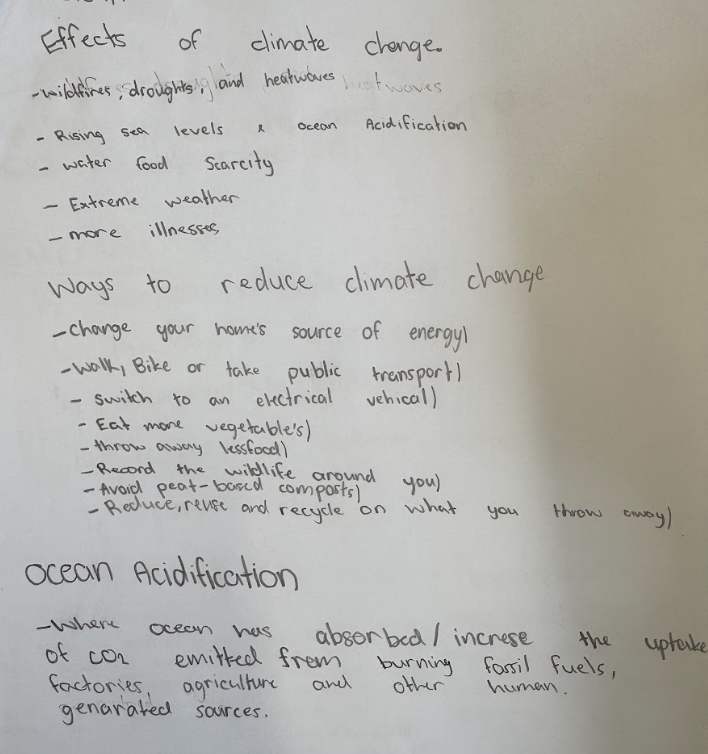 Effects of climate change.
-wildfires, droughts, and heatwaves
- Rising sea levels & ocean Acidification
- water food Scarcity
- Extreme weather
- more illnesses
Ways to reduce climate change
-change your home's source of energy)
-Walk, Bike or take public transport)
- switch to an electrical vehical)
- Eat more vegetable's)
- throw away lessfood)
- Record the wildlife around you)
- Avoid peat-based composts)
- Reduce, reuse and recycle on what you throw away)
Ocean Acidification
-Where ocean has absorbed/increse the uptake
of CO2 emitted from burning fossil fuels,
factories, agriculture and other human.
genarated sources.